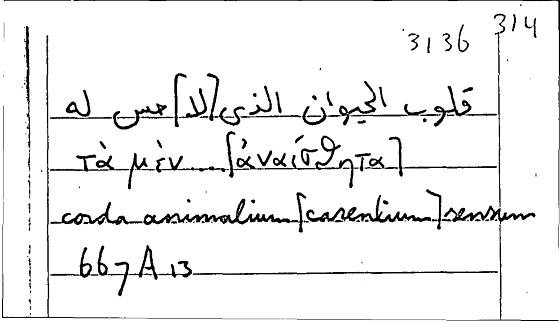 314
3136
قلوب الحيوان الذى [لا] حس له
τὰ μὲν .... [ἀναίσθητα]
corda animalium [carentium] sensum
667 A 13